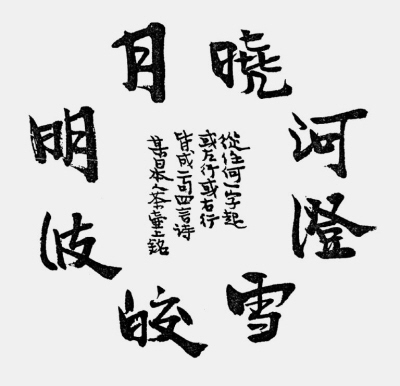 曉河澄雪皎波明月
從任何一字起
或左行或右行
皆成二句四言诗
某日本人茶壺上銘